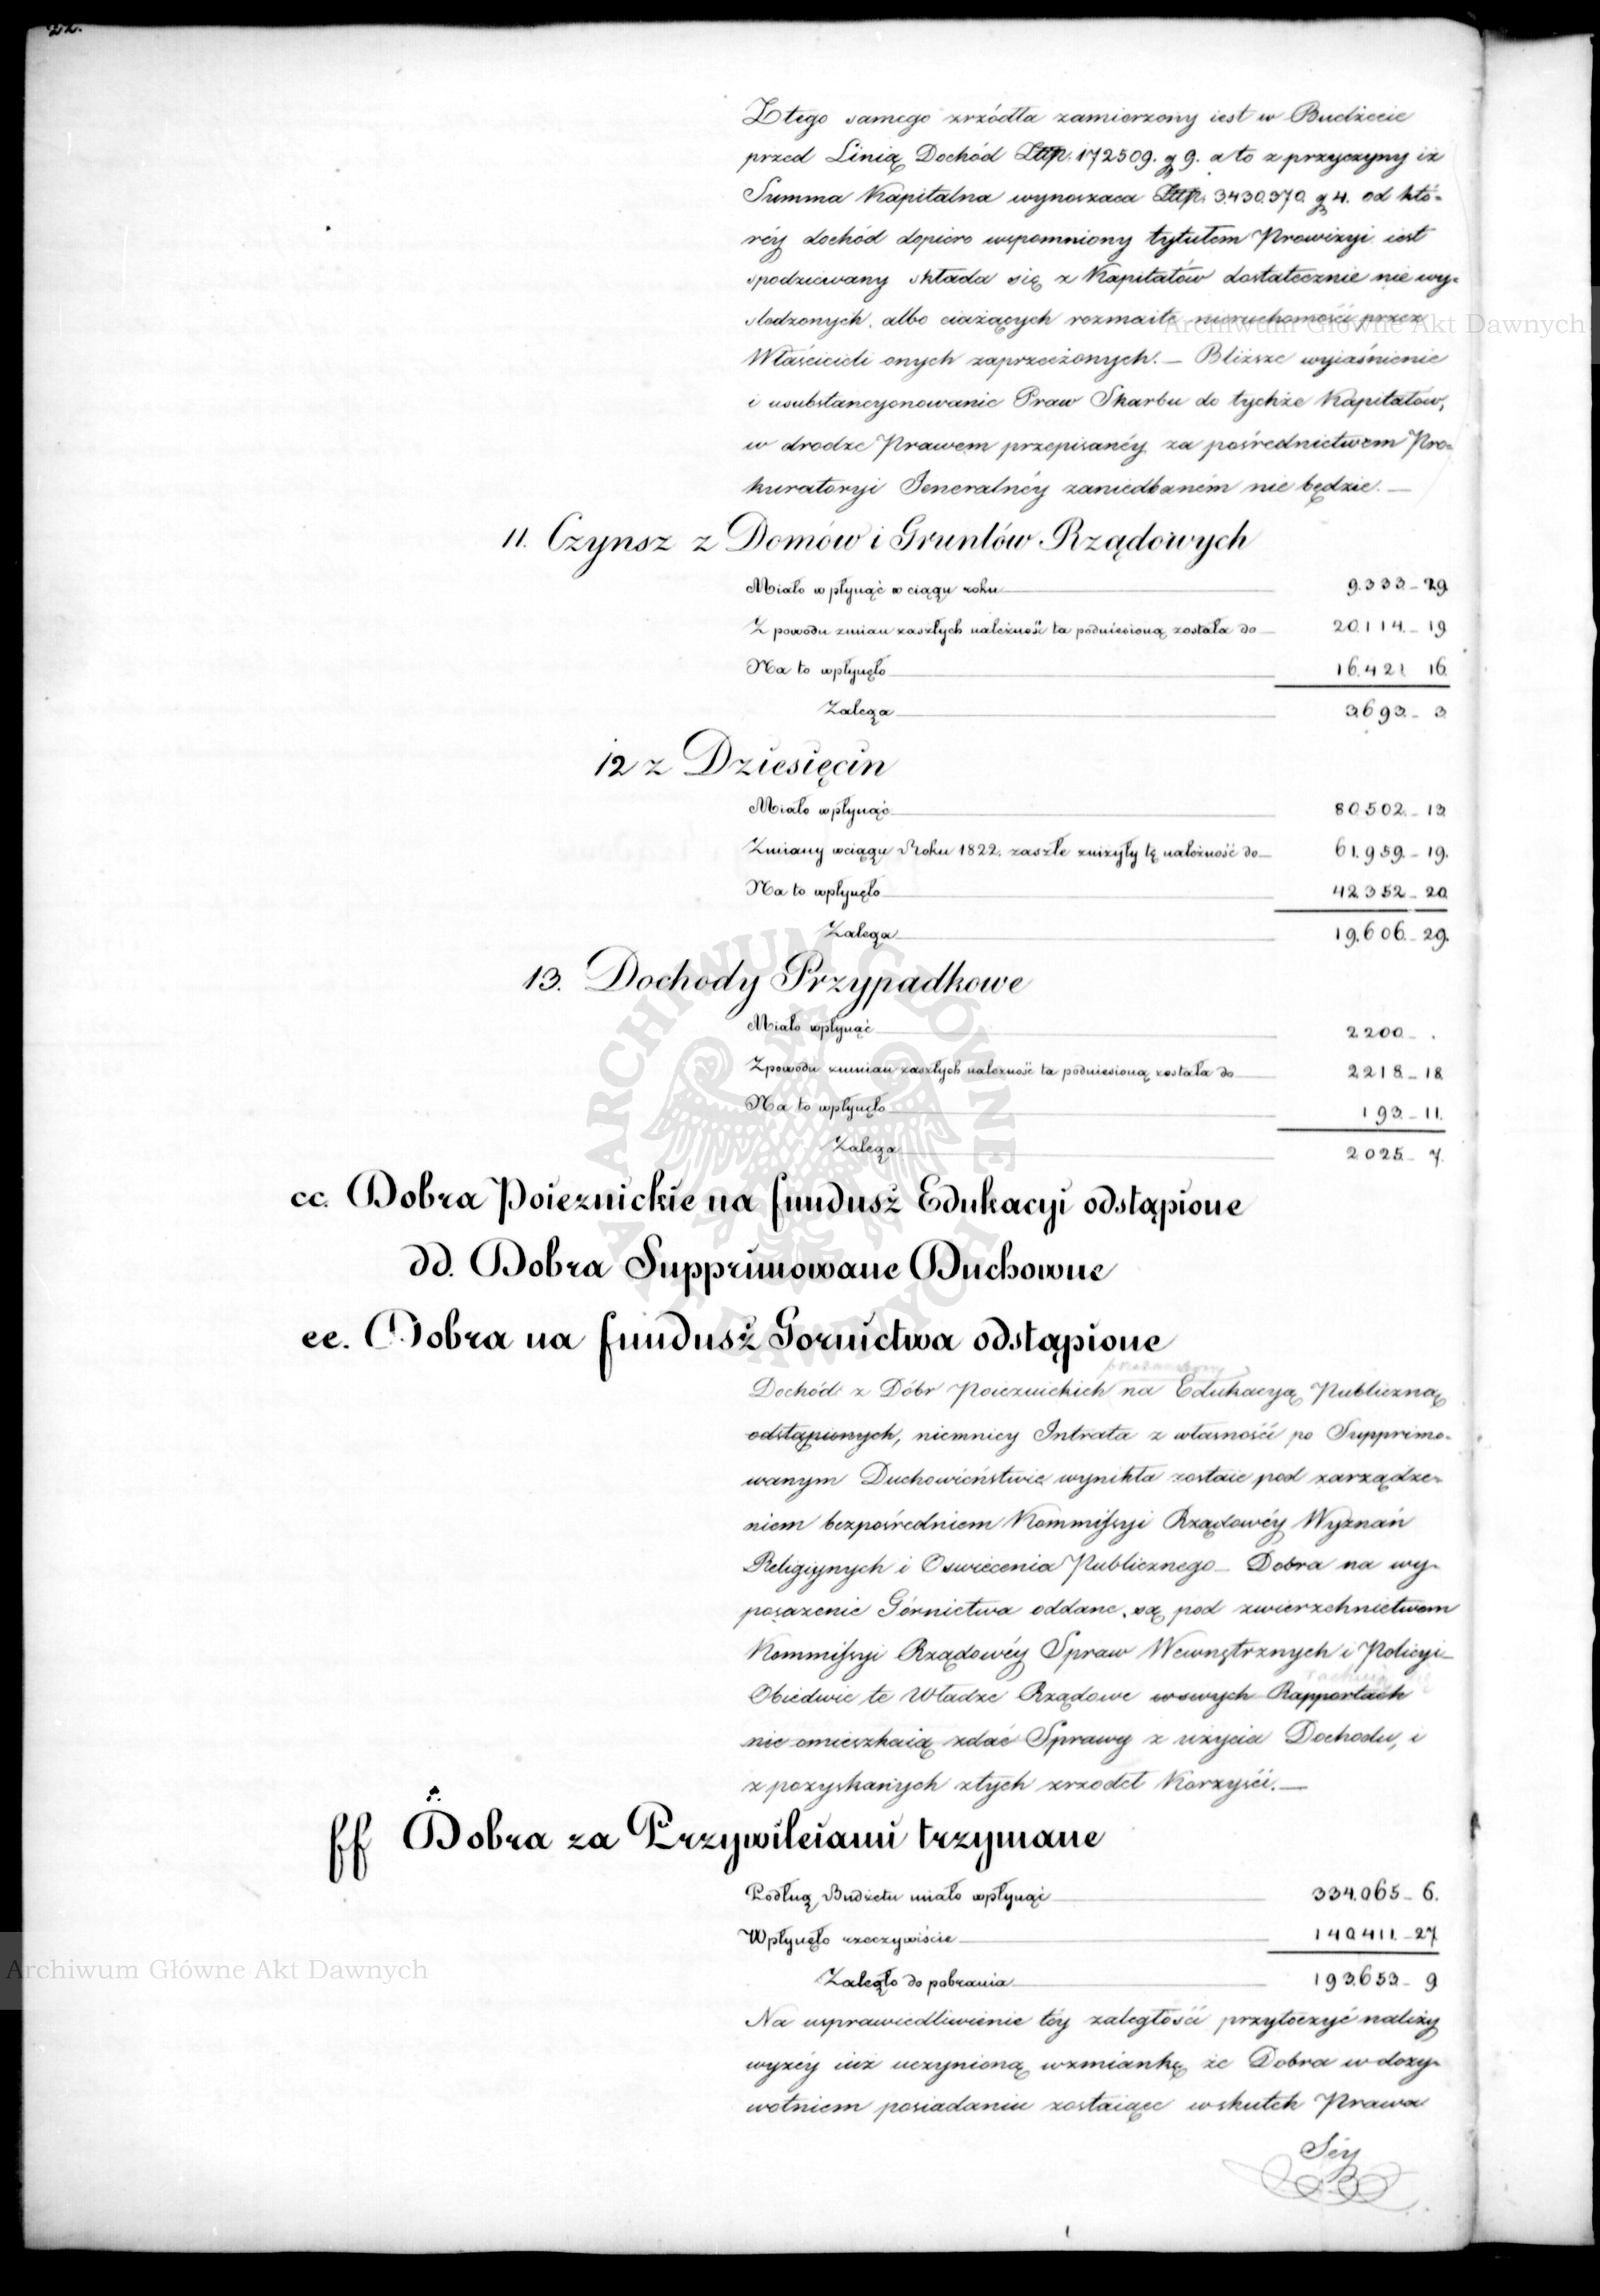 22.
Z tego samego zrzódła zamierzony iest w Budżecie
przed Linią Dochód Złłp. 172509. g 9. a to z przyczyny iż
Summa Kapitalna wynosząca Złłp. 3.430.370. g 4. od któ-
réy dochód dopiero wspomniony tytułem Prowizyi iest
spodziewany składa się z Kapitałów dostatecznie nie wy-
śledzonych, albo ciążących rozmaite nieruchomości przez
Właścicieli onych zaprzeczonych. — Bliższe wyiaśnienie
i usubstancyonowanie Praw Skarbu do tychże Kapitałów,
w drodze Prawem przepisanéy za pośrednictwem Pro-
kuratoryi Jeneralnéy zaniedbaném nie będzie. —
11. Czynsz z Domów i Gruntów Rządowych
Miało wpłynąć w ciągu roku 9.333 - 29
Z powodu zmian zaszłych należność ta podniesioną została do 20.114. - 19
Na to wpłynęło 16.421 16
Zalega 3.693. - 3
12 z Dziesięcin
Miało wpłynąć 80.502. - 13
Zmiany wciągu Roku 1822. zaszłe zniżyły tę należność do 61.959. - 19.
Na to wpłynęło 42.352 - 20
Zalega 19.606. - 29.
13. Dochody Przypadkowe
Miało wpłynąć 2.200 - .
Z powodu zmian zaszłych należność ta podniesioną została do 2.218 - 18
Na to wpłynęło 193. - 11.
Zalega 2.025 - 7.
cc. Dobra Poieznickie na fundusz Edukacyi odstąpione
dd. Dobra Supprimowane Duchowne
ee. Dobra na fundusz Gornictwa odstąpione
Dochód z Dóbr Poieznickich na Edukacyą Publiczną
odstąpionych, niemniey Intrata z własności po Supprimo-
wanym Duchowieństwie wynikła zostaie pod zarządze-
niem bezpośredniem Kommissyi Rządowéy Wyznań
Religiynych i Oswiecenia Publicznego — Dobra na wy-
posażenie Górnictwa oddane, są pod zwierzchnictwem
Kommissyi Rządowéy Spraw Wewnętrznych i Policyi —
Obiedwie te Władze Rządowe w swych Rapportach
nie omieszkaią zdać Sprawy z użycia Dochodu, i
z pozyskanych z tych zrzodeł Korzyści. —
ff Dobra za Przywileiami trzymane
Podług Budżetu miało wpłynąć 334.065 - 6.
Wpłynęło rzeczywiście 140.411. - 27
Zaległo do pobrania 193.653 - 9
Na usprawiedliwienie téy zaległości przytoczyć należy
wyżéy iuż uczynioną wzmiankę że Dobra w doży-
wotniem posiadaniu zostaiące wskutek Prawa
Sey
Archiwum Główne Akt Dawnych
Archiwum Główne Akt Dawnych
ARCHIWUM GŁÓWNE AKT DAWNYCH